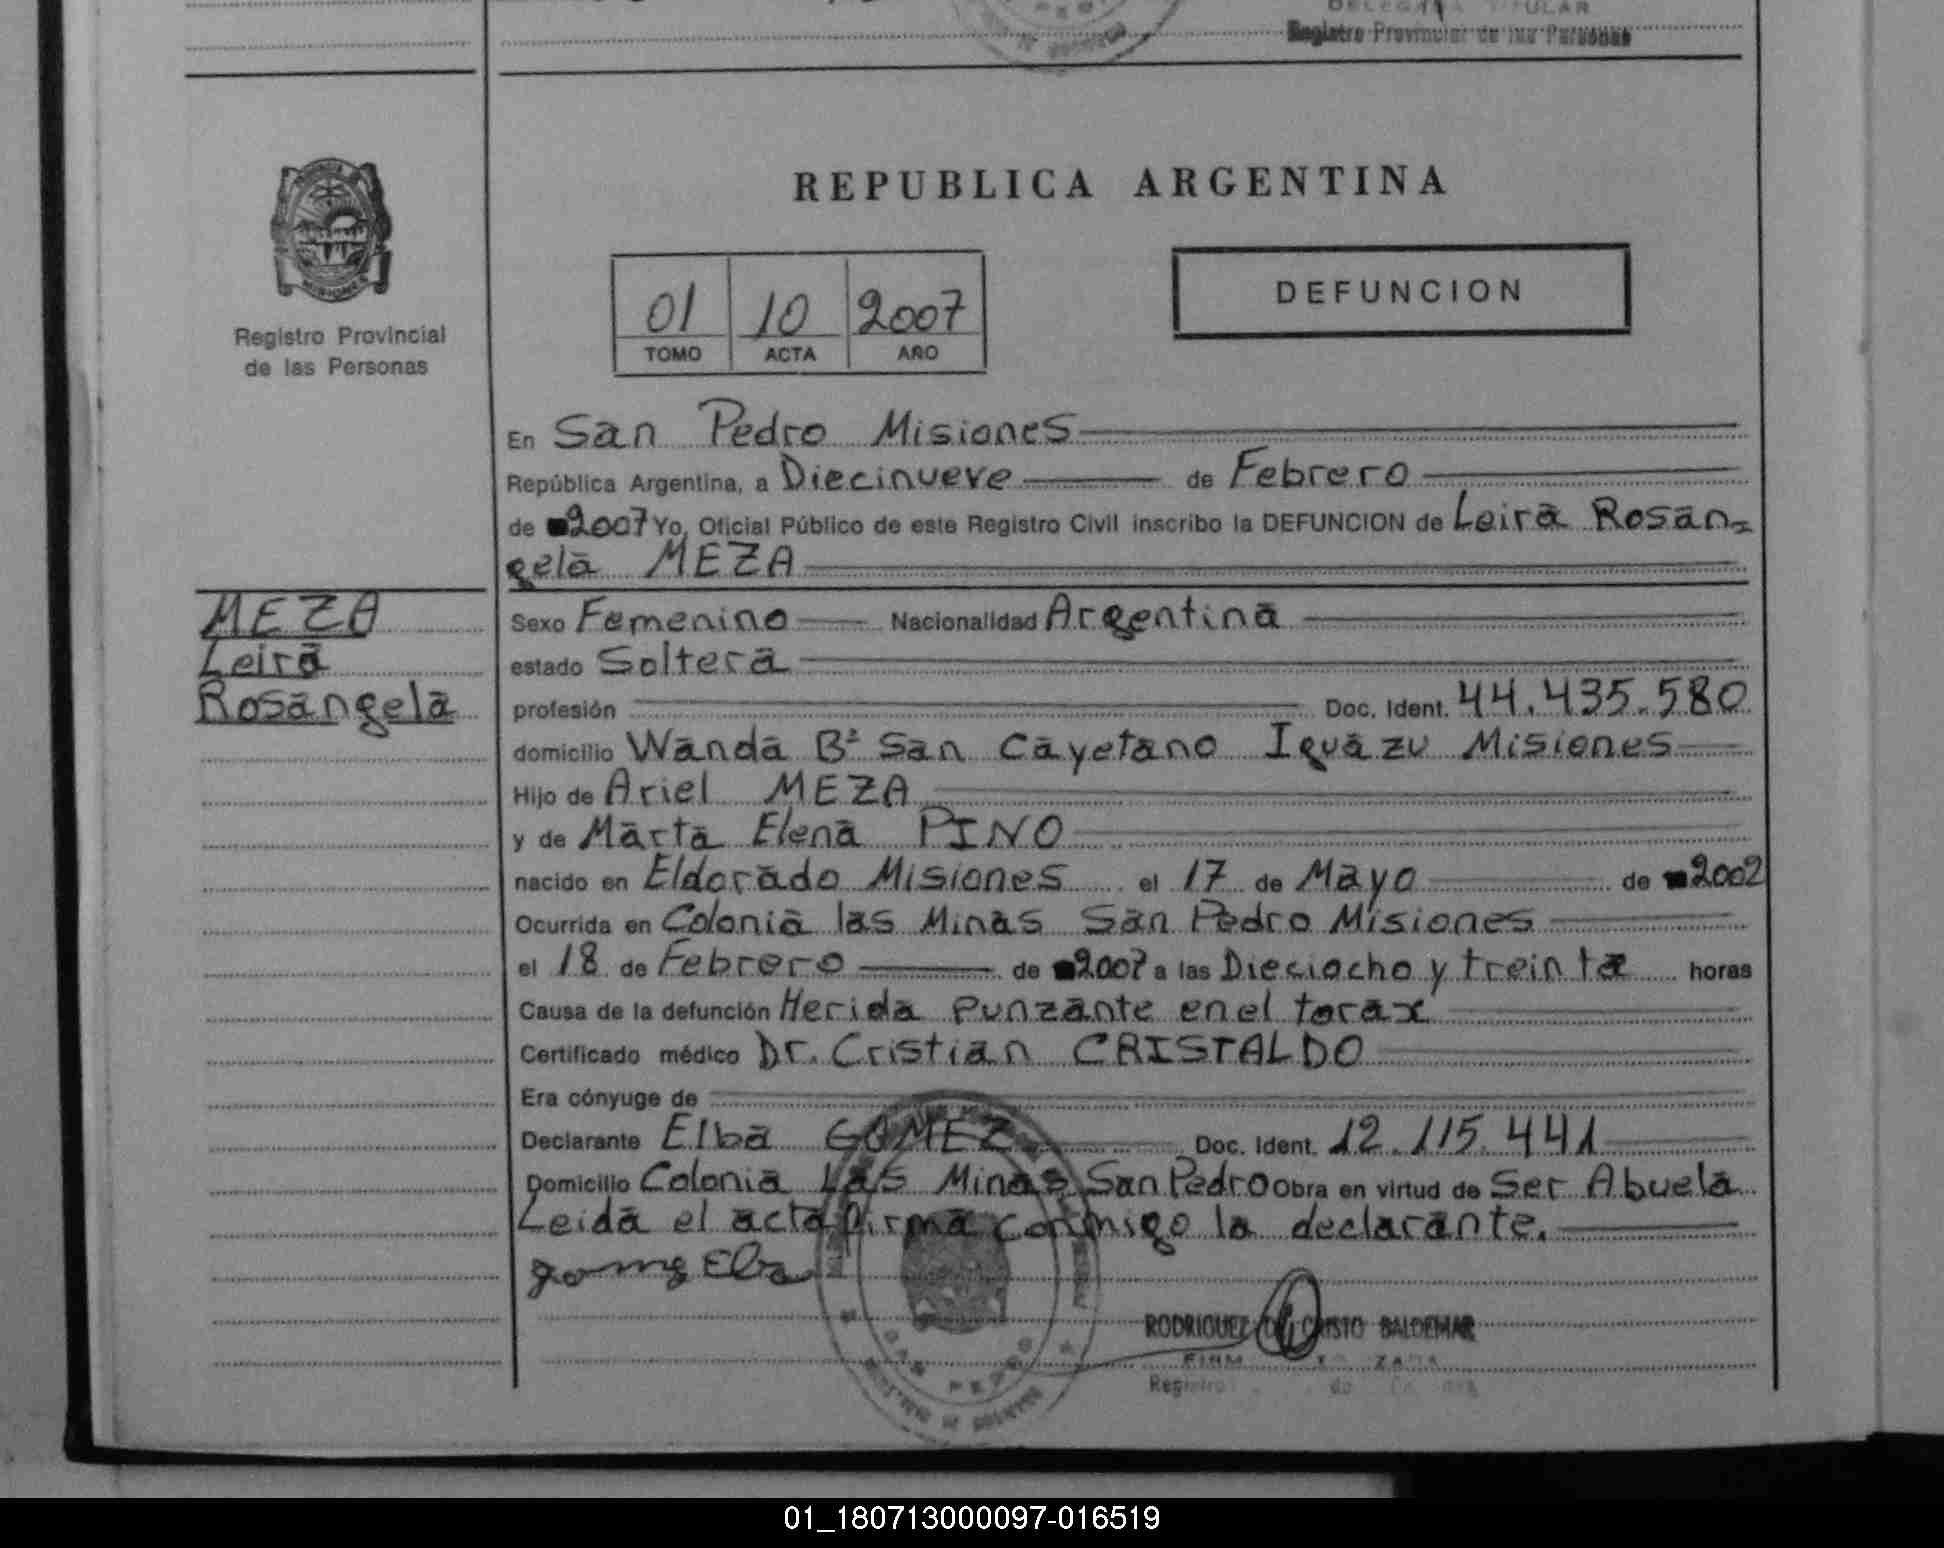 DELEGADA TITULAR
Registro Provincial de las Personas
REPUBLICA ARGENTINA
MISIONES
Registro Provincial
de las Personas
01 10 2007
TOMO ACTA AÑO
DEFUNCION
En San Pedro Misiones
República Argentina, a Diecinueve de Febrero
de 2007 Yo, Oficial Público de este Registro Civil inscribo la DEFUNCION de Leira Rosan=
gela MEZA
MEZA
Leira
Rosangela
Sexo Femenino Nacionalidad Argentina
estado Soltera
profesión Doc. Ident. 44.435.580
domicilio Wanda Bº San Cayetano Iguazu Misiones
Hijo de Ariel MEZA
y de Marta Elena PINO
nacido en Eldorado Misiones el 17 de Mayo de 2002
Ocurrida en Colonia las Minas San Pedro Misiones
el 18 de Febrero de 2007 a las Dieciocho y treinta horas
Causa de la defunción Herida punzante en el torax
Certificado médico Dr. Cristian CRISTALDO
Era cónyuge de
Declarante Elba GOMEZ Doc. Ident. 12.115.441
Domicilio Colonia Las Minas San Pedro Obra en virtud de Ser Abuela
Leida el acta firma conmigo la declarante.
gomez Elba
SAN PEDRO
RODRIGUEZ DE CRISTO BALDEMAR
Registro
01_180713000097-016519